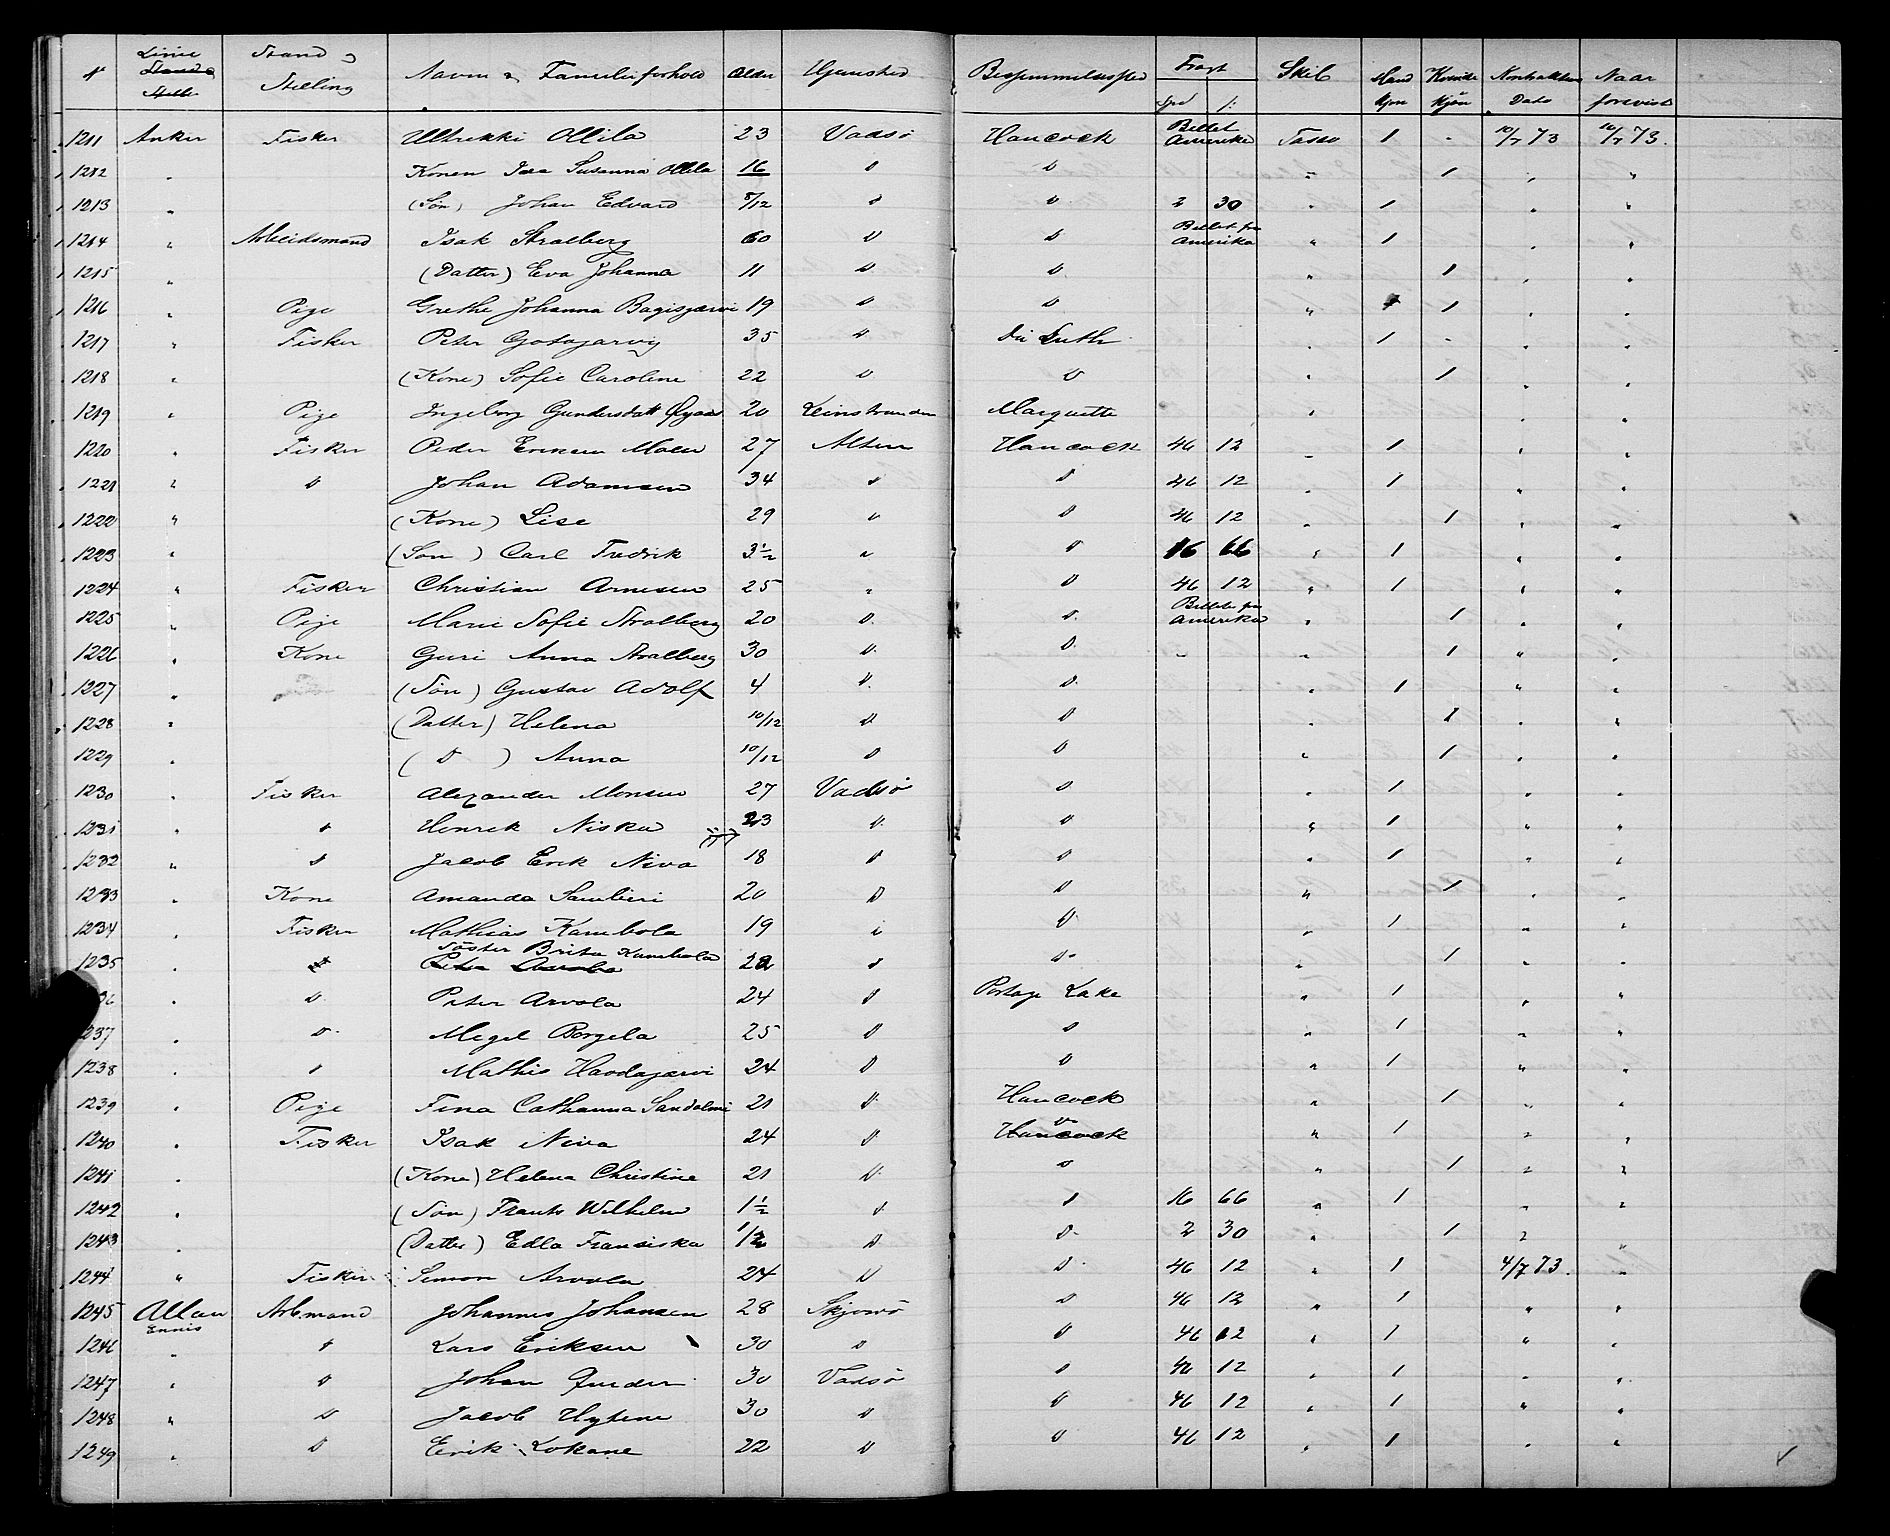 N Linie Stand & Stilling Navn & Familieforhold Alder Hjemsted Bestemmelsessted Fragt Skib Mand Kjøn Kvinde Kjøn Kontraktens Dato Naar forevist
Spd ß:
1211 Anker Fisker Ulkrikki Ollila 23 Vadsö Hancock Billet Amerika Tasso 1 - 10/7 73 10/7 73.
1212 " Konen Susanna Ollila 16 D D " 1 " "
1213 " (Søn) Johan Edvard 8/12 D D 2 30 " 1 " "
1214 " Arbeidsmand Isak Stralberg 60 D D Billet fra Amerika " 1 " "
1215 " (Datter) Eva Johanna 11 D D " 1 " "
1216 " Pige Grethe Johanna Bagisjærvi 19 D D " 1 " "
1217 " Fisker Peter Gotajarvi 35 D Du Luth " 1 - " "
1218 " (Kone) Sofie Caroline 22 D D " 1 " "
1219 " Pige Ingeborg Gundersdatt Øyaas 20 Leinstranden Marquette "
1220 " Fisker Peder Eriksen Moen 27 Alten Hancock 46 12 " 1 " "
1221 " D Johan Adamsen 34 D D 46 12 " 1 " "
1222 " (Kone) Lise 29 " D 46 12 " 1 " "
1223 " (Søn) Carl Fredrik 3½ " D 16 66 " 1 " "
1224 " Fisker Christian Arnesen 25 " D 46 12 " 1 " "
1225 " Pige Marie Sofie Stralberg 20 D D Billet fra Amerika " 1 " "
1226 " Kone Guri Anna Stralberg 30 D D " " 1 " "
1227 " (Søn) Gustav Adolf 4 D D " 1 " "
1228 " (Datter) Helena 10/12 D D 1 " "
1229 " (D) Anna 10/12 D D " 1 " "
1230 " Fisker Alexander Monsen 27 Vadsö D " 1 " "
1231 " D Henrik Niska 23 D D " 1 " "
1232 " D Jacob Erik Niva 18 D D " 1 " "
1233 " Kone Amanda Sauberi 20 D D " 1 " "
1234 " Fisker Mathias Kambola 19 " D " 1 " "
1235 " Söster Brita Kambola 22 D D " 1 " "
36 " D Peter Arvola 24 D Portage Lake " 1 " "
1237 " D Megel Borgela 25 D D " 1 " "
1238 " D Mathis Haodajarvi 24 D D " 1 " "
1239 " Pige Fina Cathanna Sandalmi 21 D Hancock " 1 " "
1240 " Fisker Isak Niva 24 D Hancock D " 1 " "
1241 " (Kone) Helena Christine 21 D D " 1 " "
1242 " (Søn) Frants Wilhelm 1½ D D 16 66 " 1 " "
1243 " (Datter) Edla Franciska 1/2 D D 2 30 " 1 " "
1244 " Fisker Simon Arvola 24 D D 46 12 " 1 4/7 73. "
1245 Allan Ennis Arb.mand Johannes Johansen 28 Skjervö D 46 12 " 1 " "
1246 " D Lars Eriksen 30 D D 46 12 " 1 " "
1247 " D Johan 30 Vadsö D 46 12 " 1 " "
1248 " D Jacob Hytene 30 D D 46 12 " 1 " "
1249 " D Eerik Lokane 22 D D 46 12 " 1 " "